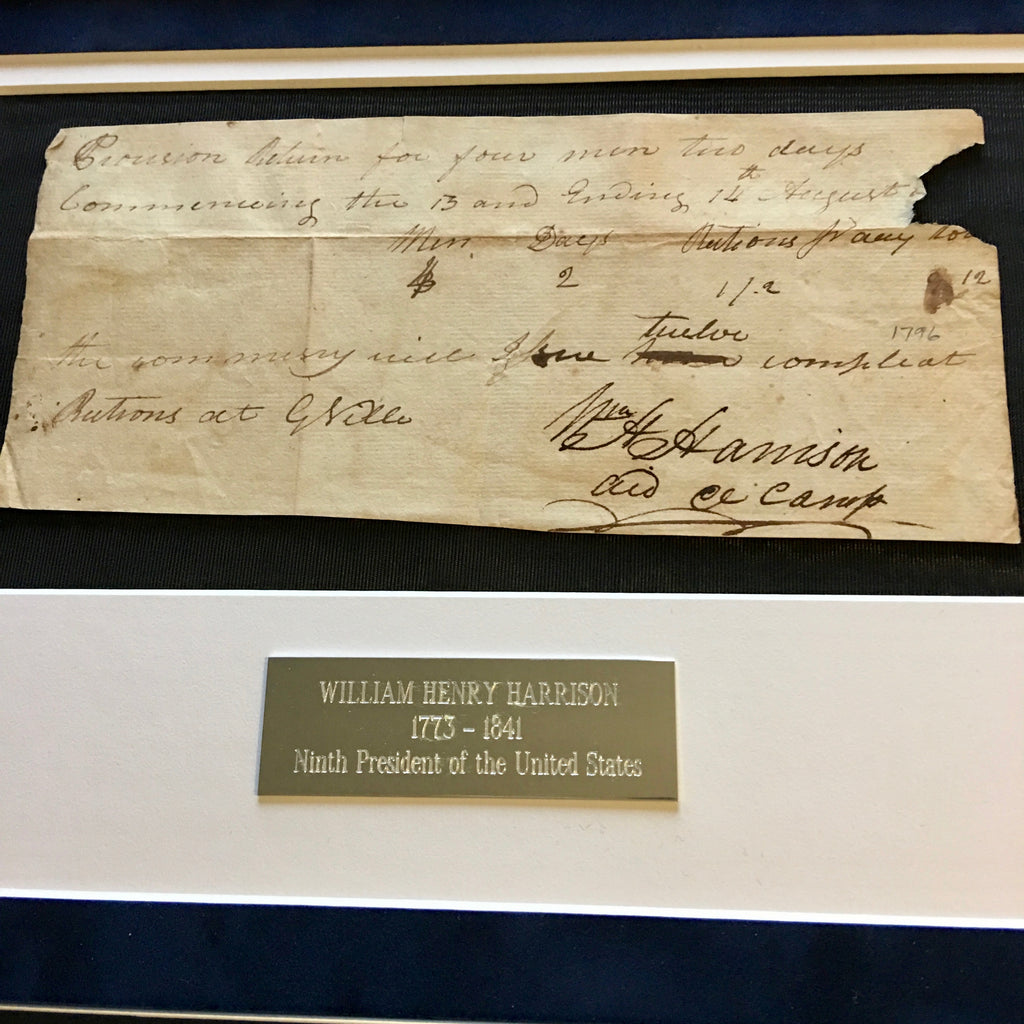 Provision Return for four men two days
Commencing the 13 and Ending 14th August
Men Days Rations Pr day
4 2 1 1/2 12
1796
twelve
the commissary will Issue compleat
Rations at GVille
Wm H Harrison
aid de Camp
WILLIAM HENRY HARRISON
1773 - 1841
Ninth President of the United States